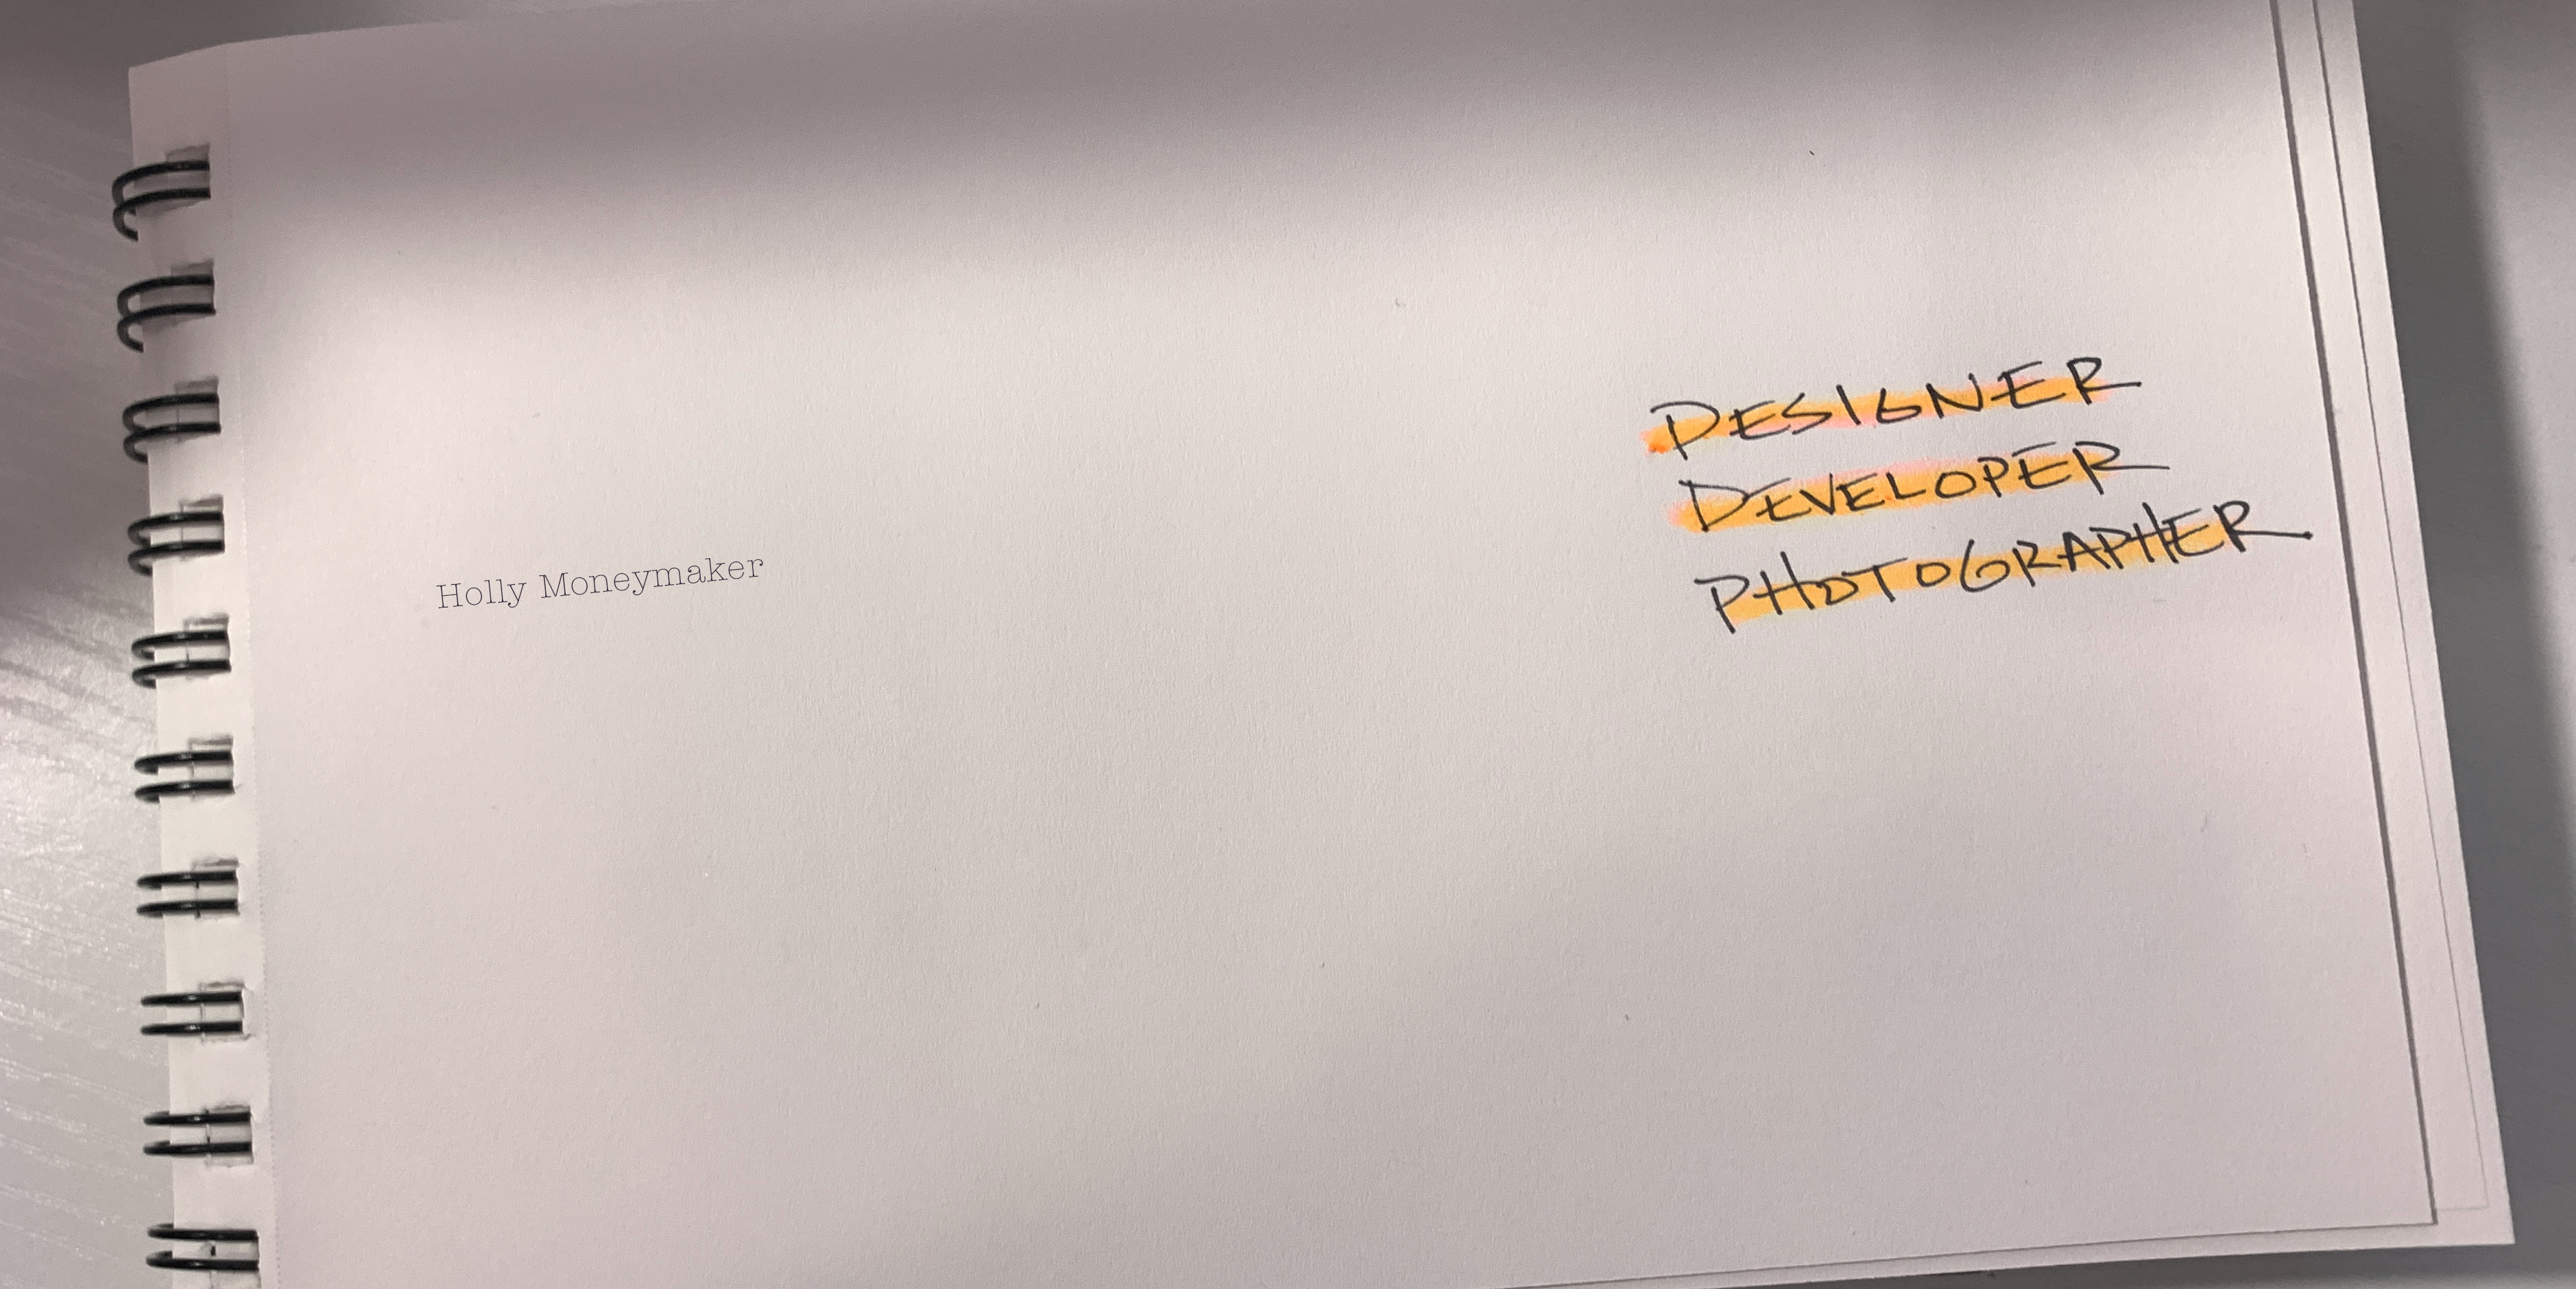 Holly Moneymaker
DESIGNER
DEVELOPER
PHOTOGRAPHER